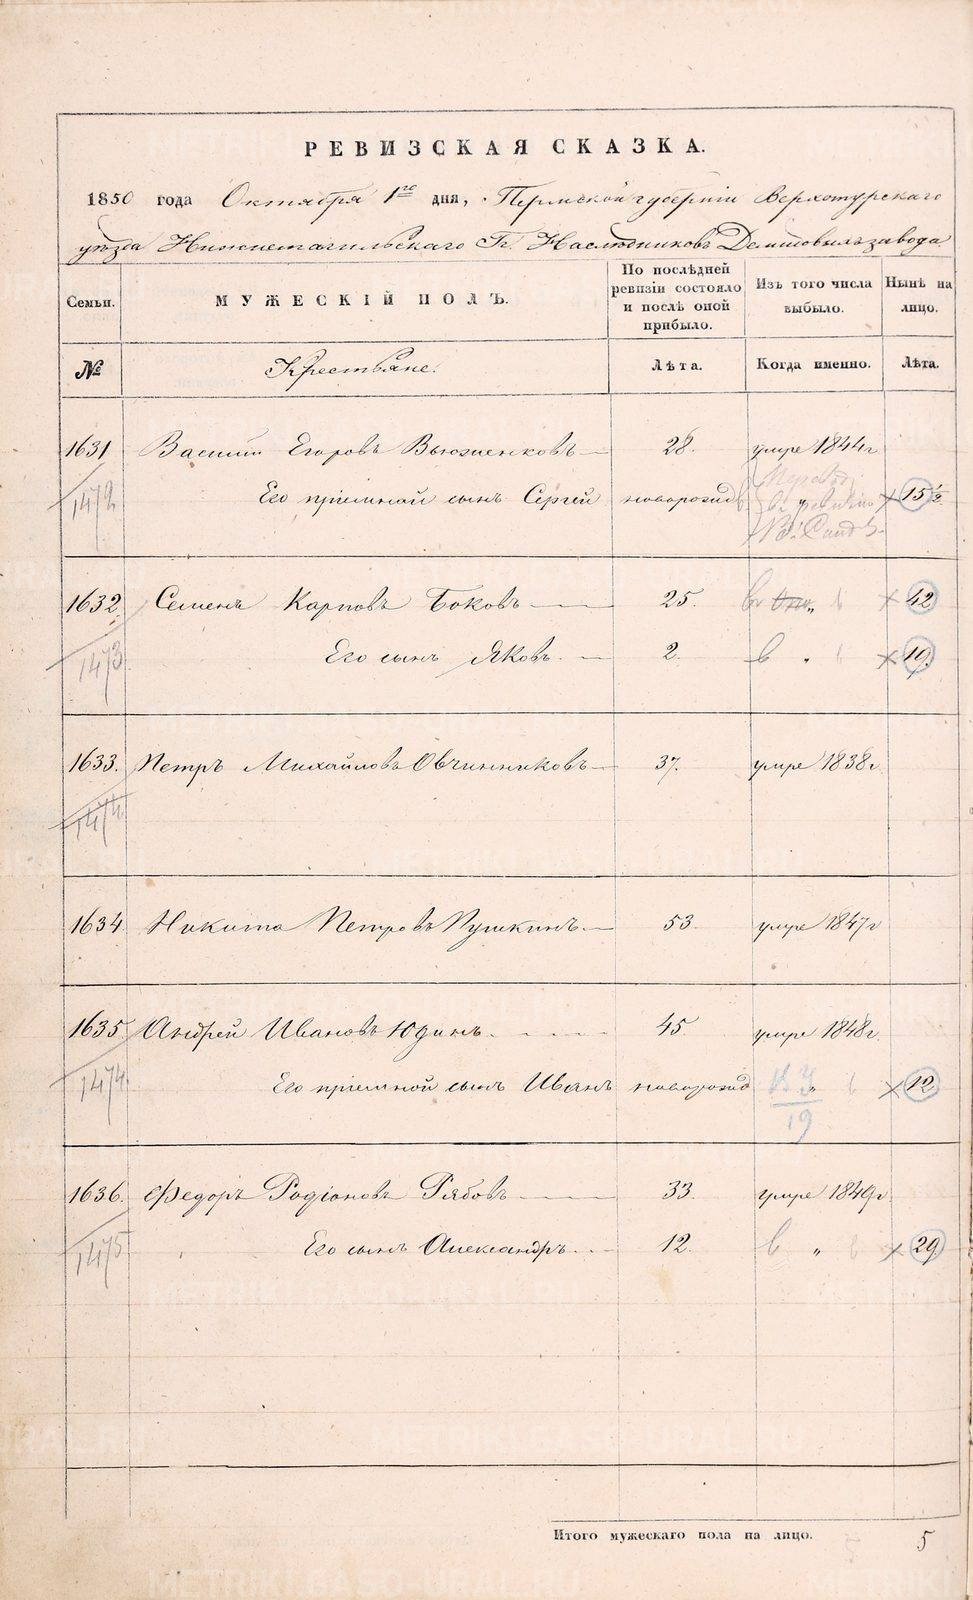 РЕВИЗСКАЯ СКАЗКА.
1850 года Октября 1го дня, Пермской губерніи Верхотурскаго
уѣзда Нижнетагильскаго Гг. Наслѣдниковъ Демидовыхъ завода
Семьи. МУЖЕСКІЙ ПОЛЪ. По послѣдней ревизіи состояло и послѣ оной прибыло. Изъ того числа выбыло. Нынѣ на лицо.
№ Крестьяне. Лѣта. Когда именно. Лѣта.
1631 Василій Егоровъ Вьюшенковъ 28. умре 1844г
1472 Его пріемной сынъ Сергей новорожд 15½
1632 Семенъ Карповъ Боковъ 25. " 42
1473 Его сынъ Яковъ 2. " 19.
1633. Петръ Михайловъ Овчинниковъ 37. умре 1838г
1474
1634 Никита Петровъ Пушкинъ 53. умре 1847г
1635 Андрей Ивановъ Юдинъ 45. умре 1848г.
1474 Его пріемной сынъ Иванъ новорожд " 12
19
1636. Федоръ Родіоновъ Рябовъ 33. умре 1849г
1475 Его сынъ Александръ 12. " 29
Итого мужескаго пола на лицо. 5
METRIKI.GASO-URAL.RU